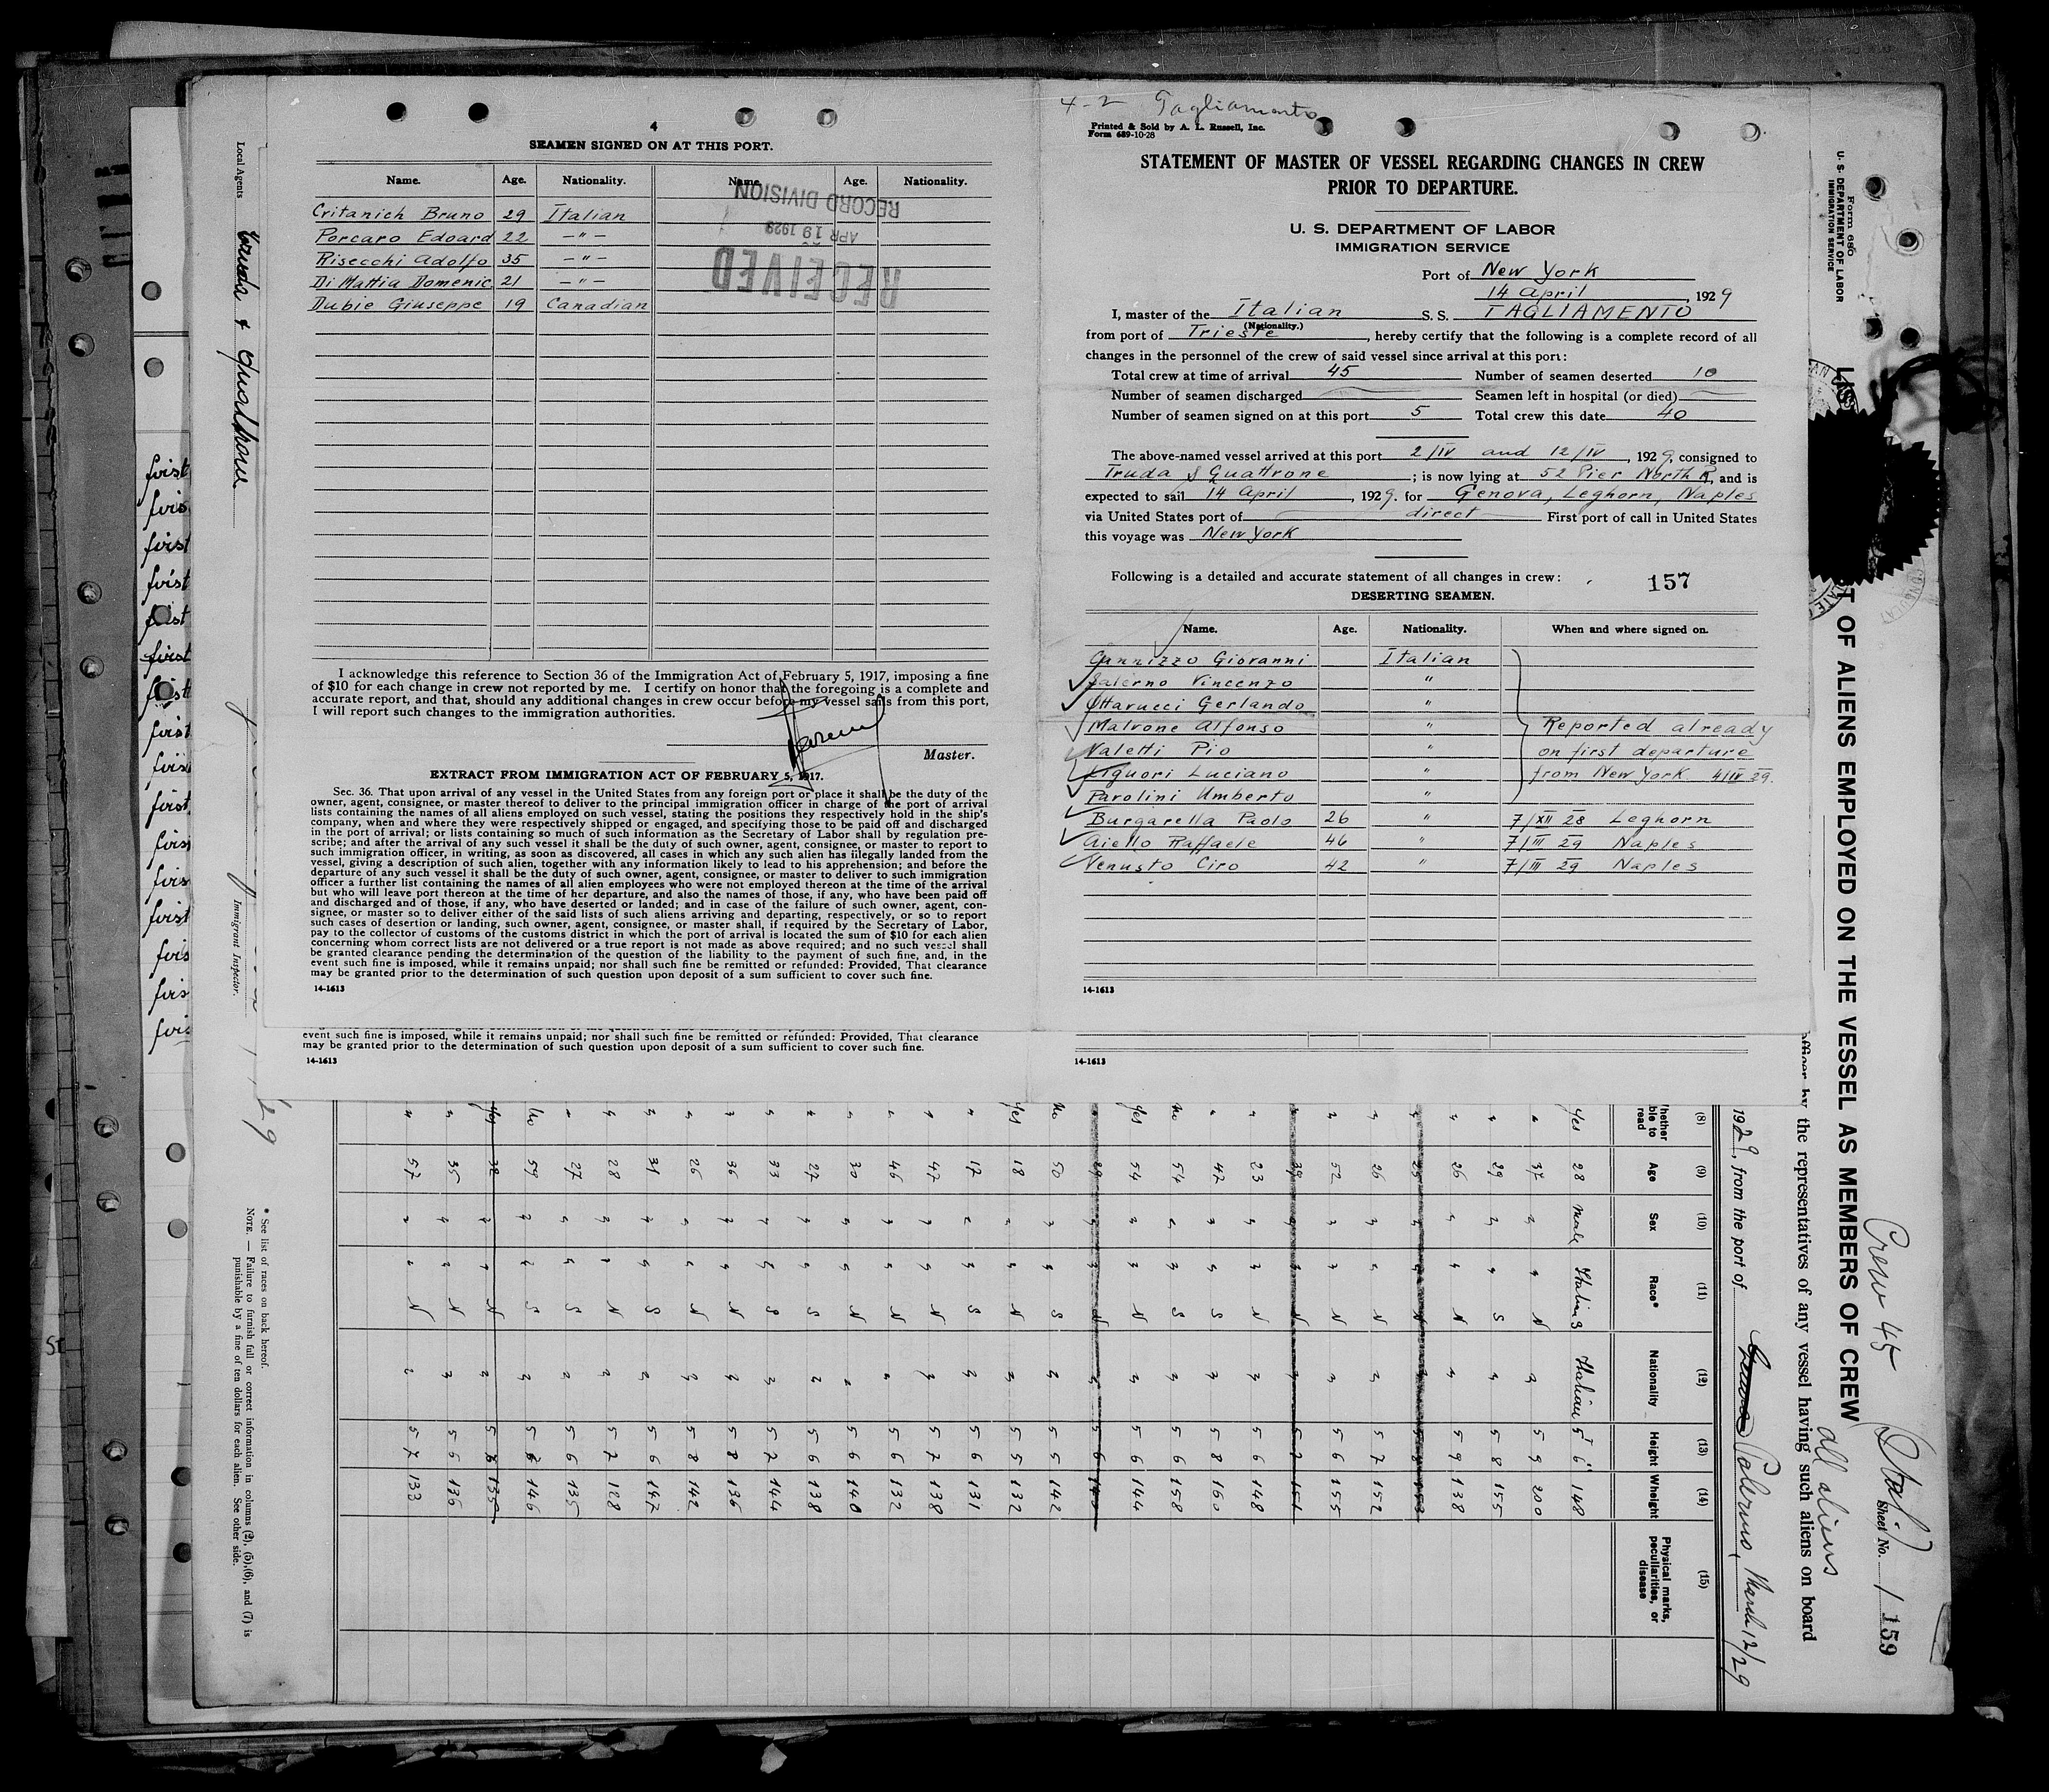 4
SEAMEN SIGNED ON AT THIS PORT.
Name. Age. Nationality. Name. Age. Nationality.
RECORD DIVISION
APR 19 1929
RECEIVED
Critanich Bruno 29 Italian
Porcaro Edoard 22 — " —
Risecchi Adolfo 35 — " —
Di Mattia Domenic 21 — " —
Dubie Giuseppe 19 Canadian
I acknowledge this reference to Section 36 of the Immigration Act of February 5, 1917, imposing a fine
of $10 for each change in crew not reported by me. I certify on honor that the foregoing is a complete and
accurate report, and that, should any additional changes in crew occur before my vessel sails from this port,
I will report such changes to the immigration authorities.
Master.
EXTRACT FROM IMMIGRATION ACT OF FEBRUARY 5, 1917.
Sec. 36. That upon arrival of any vessel in the United States from any foreign port or place it shall be the duty of the
owner, agent, consignee, or master thereof to deliver to the principal immigration officer in charge of the port of arrival
lists containing the names of all aliens employed on such vessel, stating the positions they respectively hold in the ship's
company, when and where they were respectively shipped or engaged, and specifying those to be paid off and discharged
in the port of arrival; or lists containing so much of such information as the Secretary of Labor shall by regulation pre-
scribe; and after the arrival of any such vessel it shall be the duty of such owner, agent, consignee, or master to report to
such immigration officer, in writing, as soon as discovered, all cases in which any such alien has illegally landed from the
vessel, giving a description of such alien, together with any information likely to lead to his apprehension; and before the
departure of any such vessel it shall be the duty of such owner, agent, consignee, or master to deliver to such immigration
officer a further list containing the names of all alien employees who were not employed thereon at the time of the arrival
but who will leave port thereon at the time of her departure, and also the names of those, if any, who have been paid off
and discharged and of those, if any, who have deserted or landed; and in case of the failure of such owner, agent, con-
signee, or master so to deliver either of the said lists of such aliens arriving and departing, respectively, or so to report
such cases of desertion or landing, such owner, agent, consignee, or master shall, if required by the Secretary of Labor,
pay to the collector of customs of the customs district in which the port of arrival is located the sum of $10 for each alien
concerning whom correct lists are not delivered or a true report is not made as above required; and no such vessel shall
be granted clearance pending the determination of the question of the liability to the payment of such fine, and, in the
event such fine is imposed, while it remains unpaid; nor shall such fine be remitted or refunded: Provided, That clearance
may be granted prior to the determination of such question upon deposit of a sum sufficient to cover such fine.
14-1613
event such fine is imposed, while it remains unpaid; nor shall such fine be remitted or refunded: Provided, That clearance
may be granted prior to the determination of such question upon deposit of a sum sufficient to cover such fine.
14-1613
4-2 Tagliamento
Printed & Sold by A. L. Russell, Inc.
Form 689-10-28
STATEMENT OF MASTER OF VESSEL REGARDING CHANGES IN CREW
PRIOR TO DEPARTURE.
U. S. DEPARTMENT OF LABOR
IMMIGRATION SERVICE
Port of New York
14 April, 1929
I, master of the Italian S. S. TAGLIAMENTO
(Nationality.)
from port of Trieste, hereby certify that the following is a complete record of all
changes in the personnel of the crew of said vessel since arrival at this port:
Total crew at time of arrival 45 Number of seamen deserted 10
Number of seamen discharged Seamen left in hospital (or died)
Number of seamen signed on at this port 5 Total crew this date 40
The above-named vessel arrived at this port 2/IV and 12/IV, 1929, consigned to
Truda & Quattrone; is now lying at 52 Pier North R, and is
expected to sail 14 April, 1929. for Genova, Leghorn, Naples
via United States port of direct First port of call in United States
this voyage was New York
Following is a detailed and accurate statement of all changes in crew:
157
DESERTING SEAMEN.
Name. Age. Nationality. When and where signed on.
Cannizzo Giovanni Italian
Salerno Vincenzo "
Ottarucci Gerlando "
Malvone Alfonso " Reported already
Valetti Pio " on first departure
Liguori Luciano " from New York 4/IV 29.
Parolini Umberto "
Burgarella Paolo 26 " 7/XII 28 Leghorn
Aiello Raffaele 46 " 7/III 29 Naples
Venusto Ciro 42 " 7/III 29 Naples
14-1613
14-1613
Local Agents Truda & Quattrone
Immigrant Inspector.
* See list of races on back hereof.
NOTE. — Failure to furnish full or correct information in columns (2), (5), (6), and (7) is
punishable by a fine of ten dollars for each alien. See other side.
Form 680
U. S. DEPARTMENT OF LABOR
IMMIGRATION SERVICE
OF ALIENS EMPLOYED ON THE VESSEL AS MEMBERS OF CREW
Crew 45
all aliens
Ital
Sheet No. 1
159
by the representatives of any vessel having such aliens on board
1929, from the port of Palermo, March 12/29
(8) (9) (10) (11) (12) (13) (14) (15)
Whether able to read Age Sex Race* Nationality Height Wheight Physical marks, peculiarities, or disease
Yes 28 male Italian S Italian 5 6 148
37 N 5 9 200
29 S 5 8 155
26 N 5 9 138
26 N 5 7 152
52 N 5 6 155
39 N 151
23 N 5 6 148
42 S 5 8 160
no 54 S 5 6 158
Yes 54 N 5 6 144
no 50 S 5 5 142
Yes 18 N 5 5 132
17 S 5 6 131
47 N 5 7 138
46 N 5 6 132
30 N 5 6 140
27 S 5 6 138
33 S 5 7 144
36 N 5 8 136
26 N 5 8 142
31 S 5 6 147
28 N 5 7 128
27 S 5 6 135
no 59 S 146
Yes 38 N 135
35 N 5 6 136
57 N 5 7 133
first
first
first
first
first
first
first
first